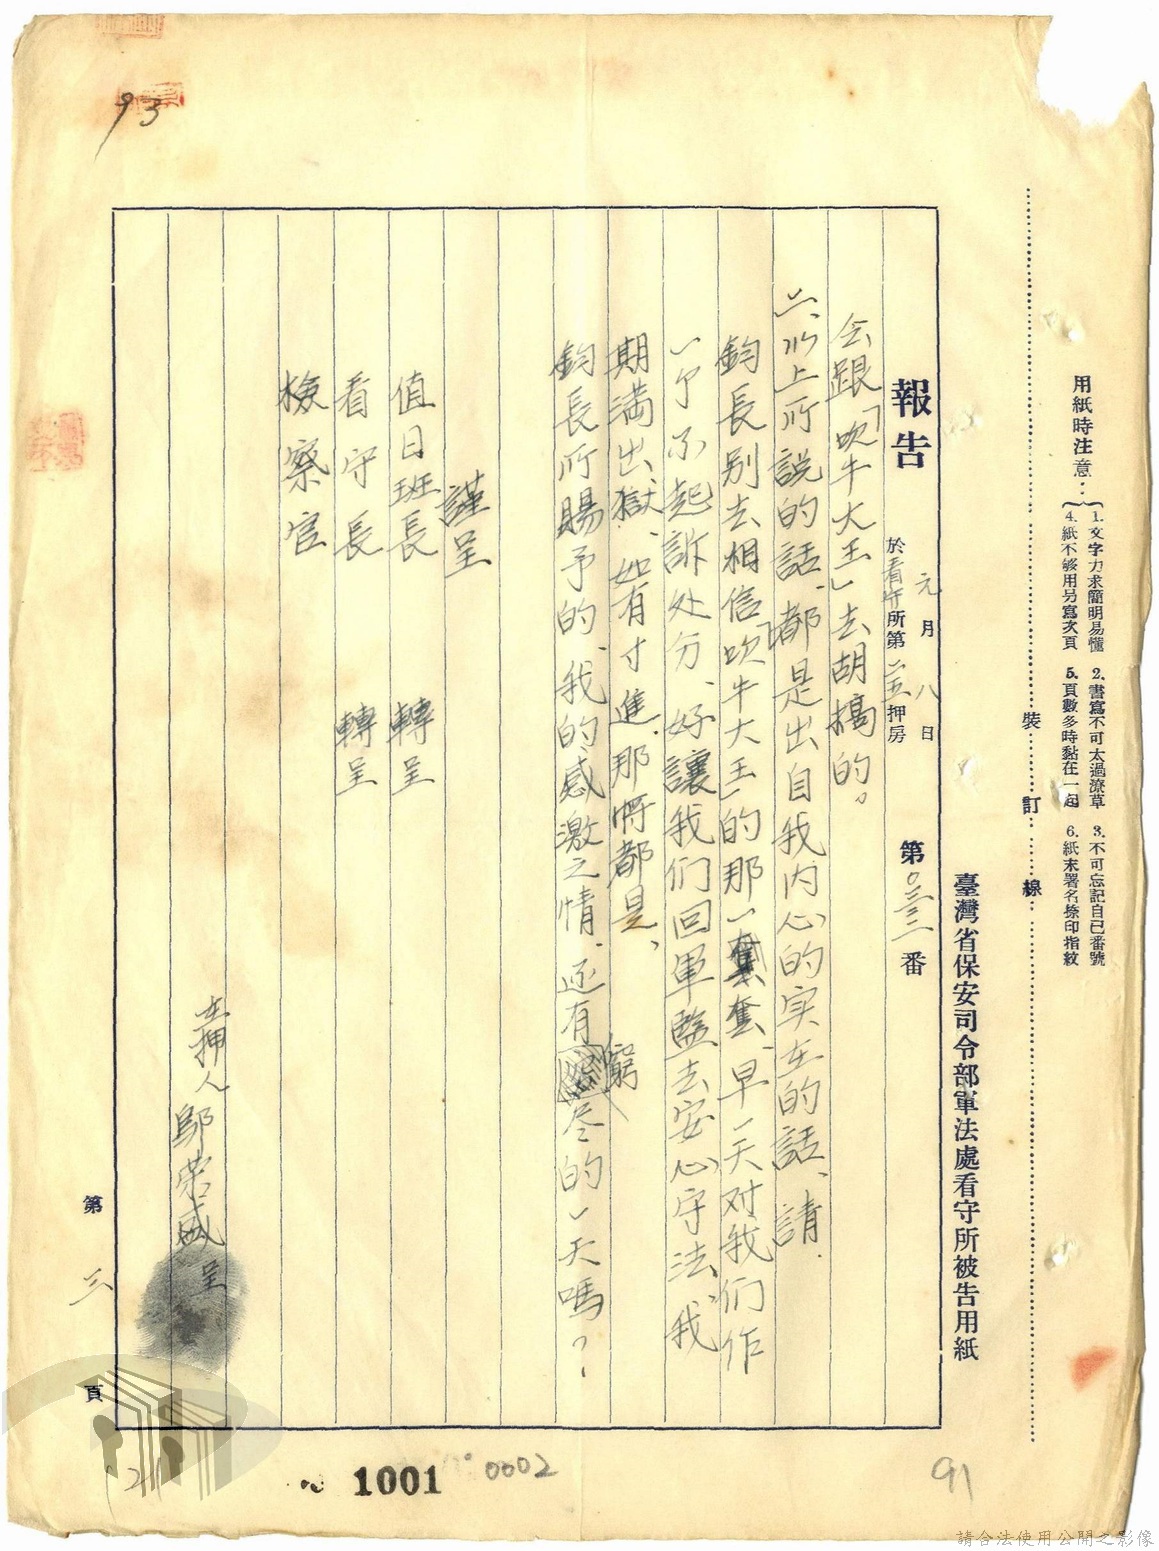 用紙時注意：
1.文字力求簡明易懂 2.書寫不可太過潦草 3.不可忘記自己番號
4.紙不够用另寫次頁 5.頁數多時黏在一起 6.紙末署名捺印指紋
裝訂線
臺灣省保安司令部軍法處看守所被告用紙
報告 元月八日 第 番
於看守所第 押房
会跟「吹牛大王」去胡搞的。
二、以上所説的話、都是出自我内心的实在的話、請.
鈞長别去相信「吹牛大王」的那一套、早一天对我们作
一个不起訴处分、好讓我们回軍監去安心守法、我
期满出獄、如有寸進、那將都是、
鈞長所賜予的、我的感激之情、还有窮尽的一天嗎？.
謹呈
值日班長 轉呈
看守長 轉呈
檢察官
在押人 鄔荣盛 呈
第三頁
93
21
1001
0002
91
請合法使用公開之影像